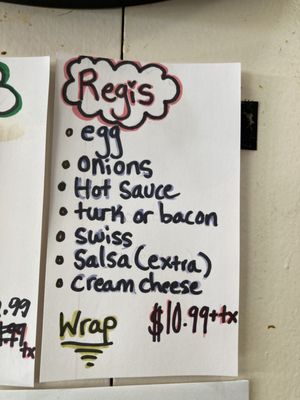 Regis
• egg
• onions
• Hot Sauce
• turk or bacon
• swiss
• Salsa (extra)
• cream cheese
Wrap
$10.99+tx
.99
tx